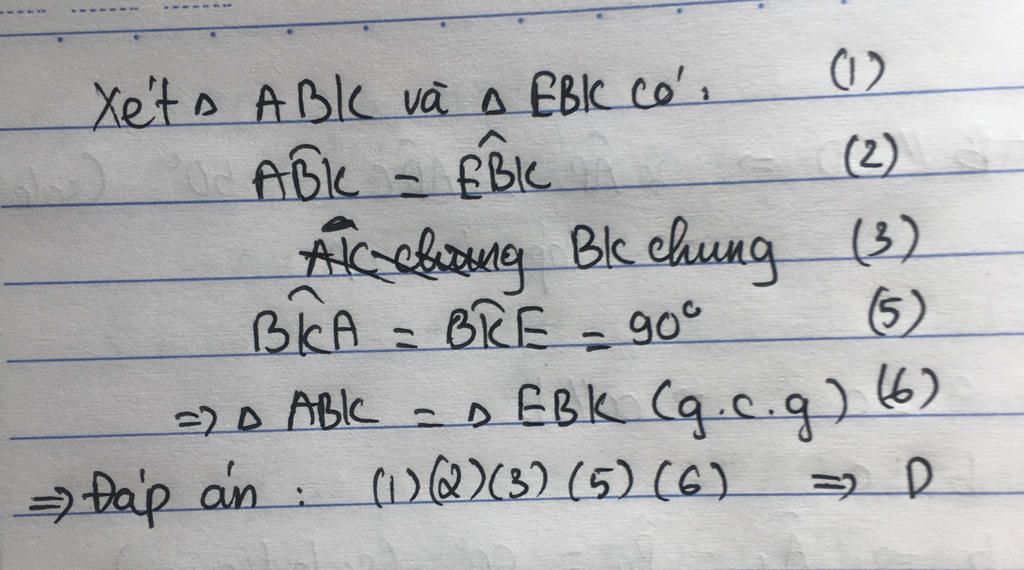 Xét Δ ABK và Δ EBK có: (1)
AB̂K = EB̂K (2)
BK chung (3)
BK̂A = BK̂E = 90° (5)
=> Δ ABK = Δ EBK (g.c.g) (6)
=> Đáp án : (1)(2)(3)(5)(6) => D